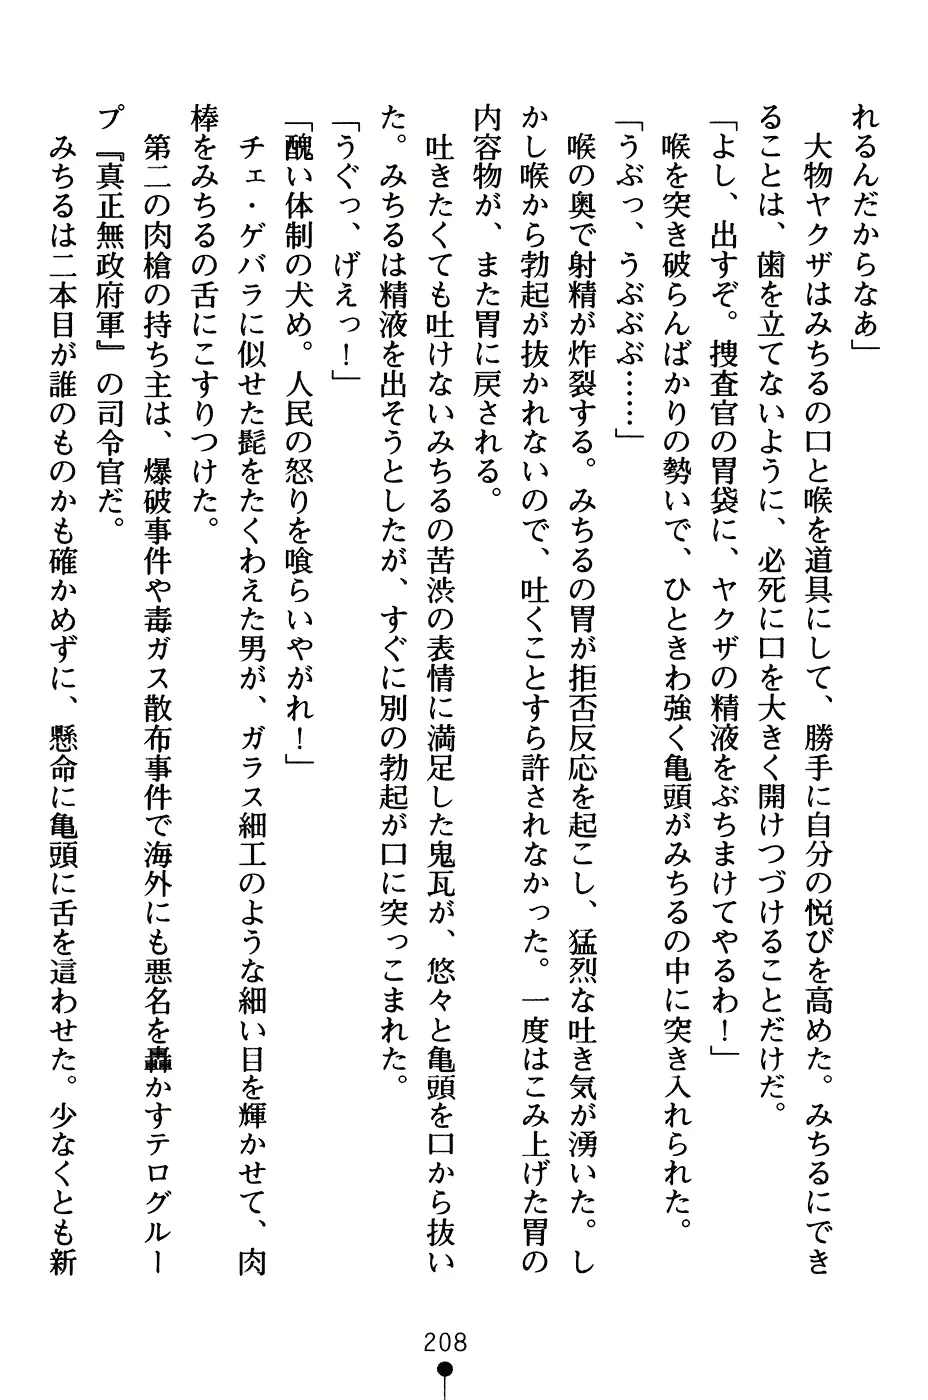 れるんだからなあ」
　大物ヤクザはみちるの口と喉を道具にして、勝手に自分の悦びを高めた。みちるにでき
ることは、歯を立てないように、必死に口を大きく開けつづけることだけだ。
「よし、出すぞ。捜査官の胃袋に、ヤクザの精液をぶちまけてやるわ！」
　喉を突き破らんばかりの勢いで、ひときわ強く亀頭がみちるの中に突き入れられた。
「うぶっ、うぶぶぶ……」
　喉の奥で射精が炸裂する。みちるの胃が拒否反応を起こし、猛烈な吐き気が湧いた。し
かし喉から勃起が抜かれないので、吐くことすら許されなかった。一度はこみ上げた胃の
内容物が、また胃に戻される。
　吐きたくても吐けないみちるの苦渋の表情に満足した鬼瓦が、悠々と亀頭を口から抜い
た。みちるは精液を出そうとしたが、すぐに別の勃起が口に突っこまれた。
「うぐっ、げえっ！」
「醜い体制の犬め。人民の怒りを喰らいやがれ！」
　チェ・ゲバラに似せた髭をたくわえた男が、ガラス細工のような細い目を輝かせて、肉
棒をみちるの舌にこすりつけた。
　第二の肉槍の持ち主は、爆破事件や毒ガス散布事件で海外にも悪名を轟かすテログルー
プ『真正無政府軍』の司令官だ。
　みちるは二本目が誰のものかも確かめずに、懸命に亀頭に舌を這わせた。少なくとも新
208